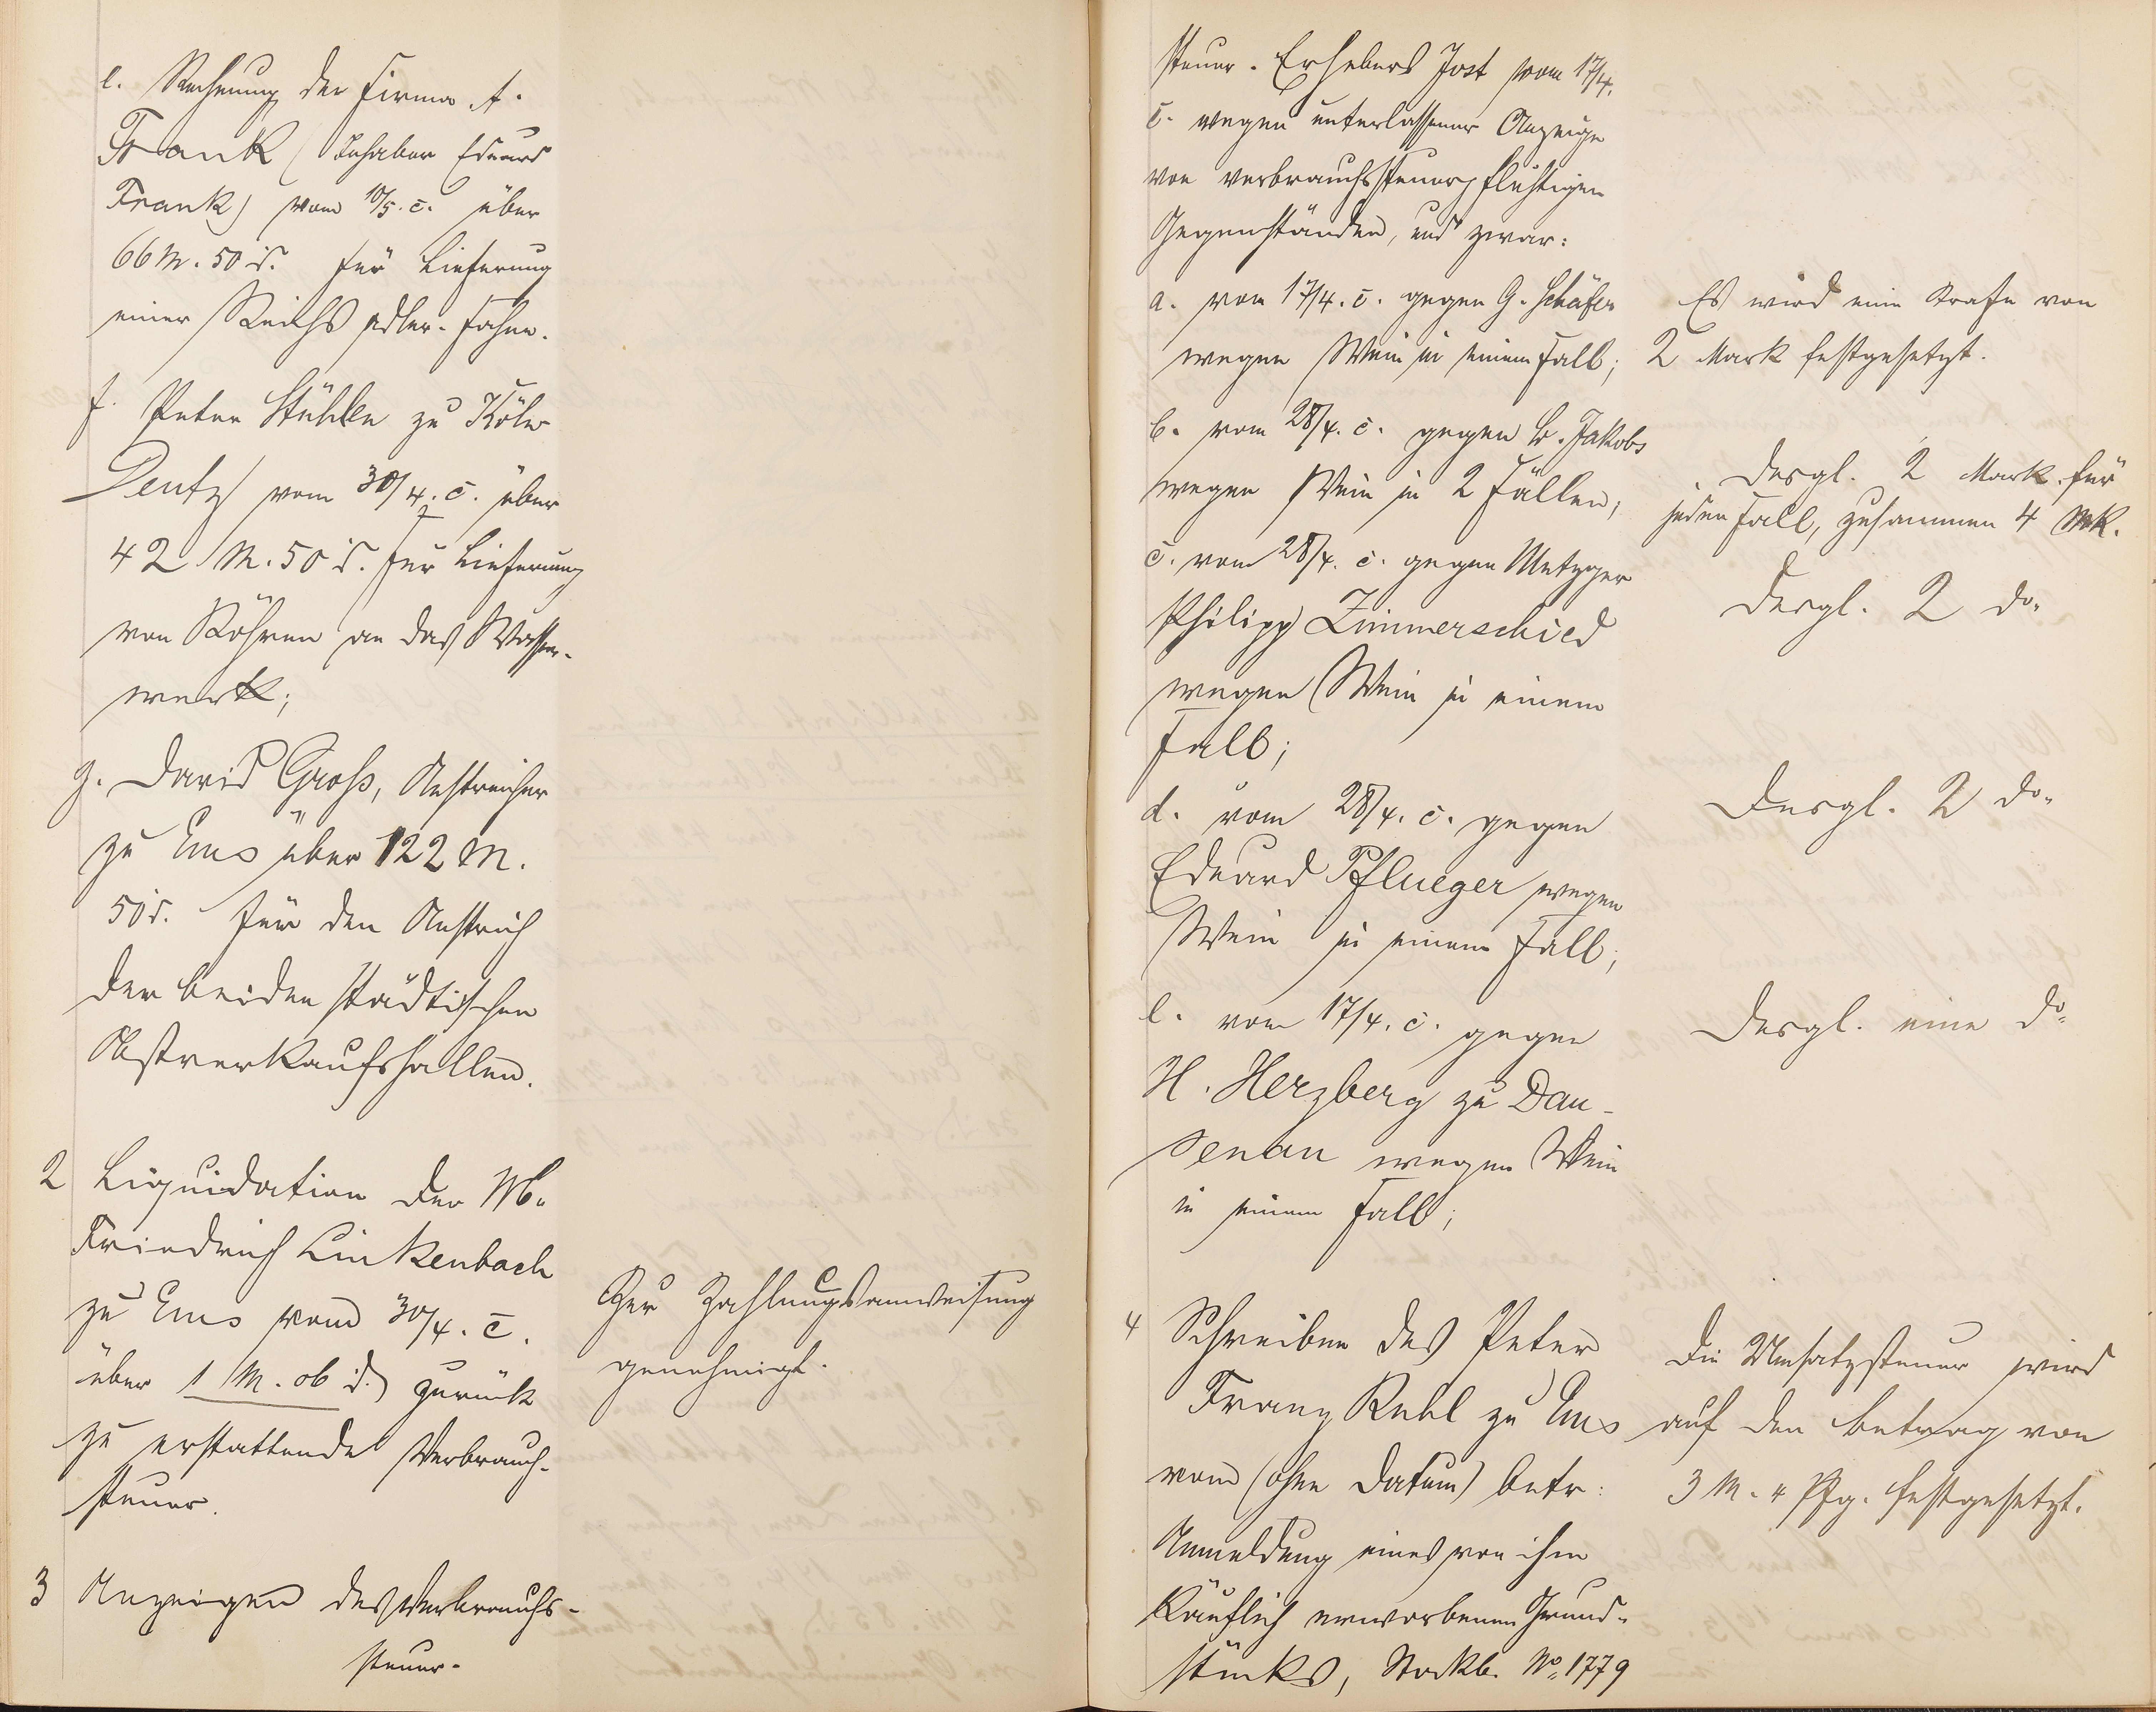 e. Rechnung der Firma A.
Frank (Inhaber Eduard
Frank) vom 10/5. c. über
66 M. 50 d. für Lieferung
einer Reichsadler-Fahne.
f. Peter Stühlen zu Köln-
Deutz vom 30/4. c. über
42 M. 50 d. für Lieferung
von Röhren an das Wasser-
werk;
g. David Groß, Anstreicher
zu Ems über 122 M.
50 d. für den Anstrich
der beiden städtischen
Obstverkaufshallen.
2 Liquidation der Ww.
Friedrich Linkenbach
zu Ems vom 30/4. c.
über 1 M. 06 d. zurück
zu erstattende Verbrauch-
steuer.
Zur Zahlungsanweisung
genehmigt.
3 Anzeigen des Verbrauchs-
steuer-
steuer-Erhebers Jost vom 17/4.
c. wegen unterlassener Anzeige
von verbrauchssteuerpflichtigen
Gegenständen, und zwar:
a. vom 17/4. c. gegen G. Schäfer
wegen Wein in einem Fall;
Es wird eine Strafe von
2 Mark festgesetzt.
b. vom 28/4. c. gegen Jakobs
wegen Wein in 2 Fällen;
Desgl. 2 Mark für
jeden Fall, zusammen 4 Mk.
c. vom 28/4. c. gegen Metzger
Philipp Zimmerschied
wegen Wein in einem
Fall;
Desgl. 2 do.
d. vom 28/4. c. gegen
Eduard Pflueger wegen
Wein in einem Fall;
Desgl. 2 do.
e. vom 17/4. c. gegen
H. Herzberg zu Dau-
senau wegen Wein
in einem Fall;
Desgl. eine do.
4 Schreiben des Peter
Franz zu Ems
vom (ohne Datum) betr:
Anmeldung eines von ihm
käuflich erworbenen Grund-
stücks, Stockb. No. 1779
Die Umsatzsteuer wird
auf den Betrag von
3 M. 4 Pfg. festgesetzt.